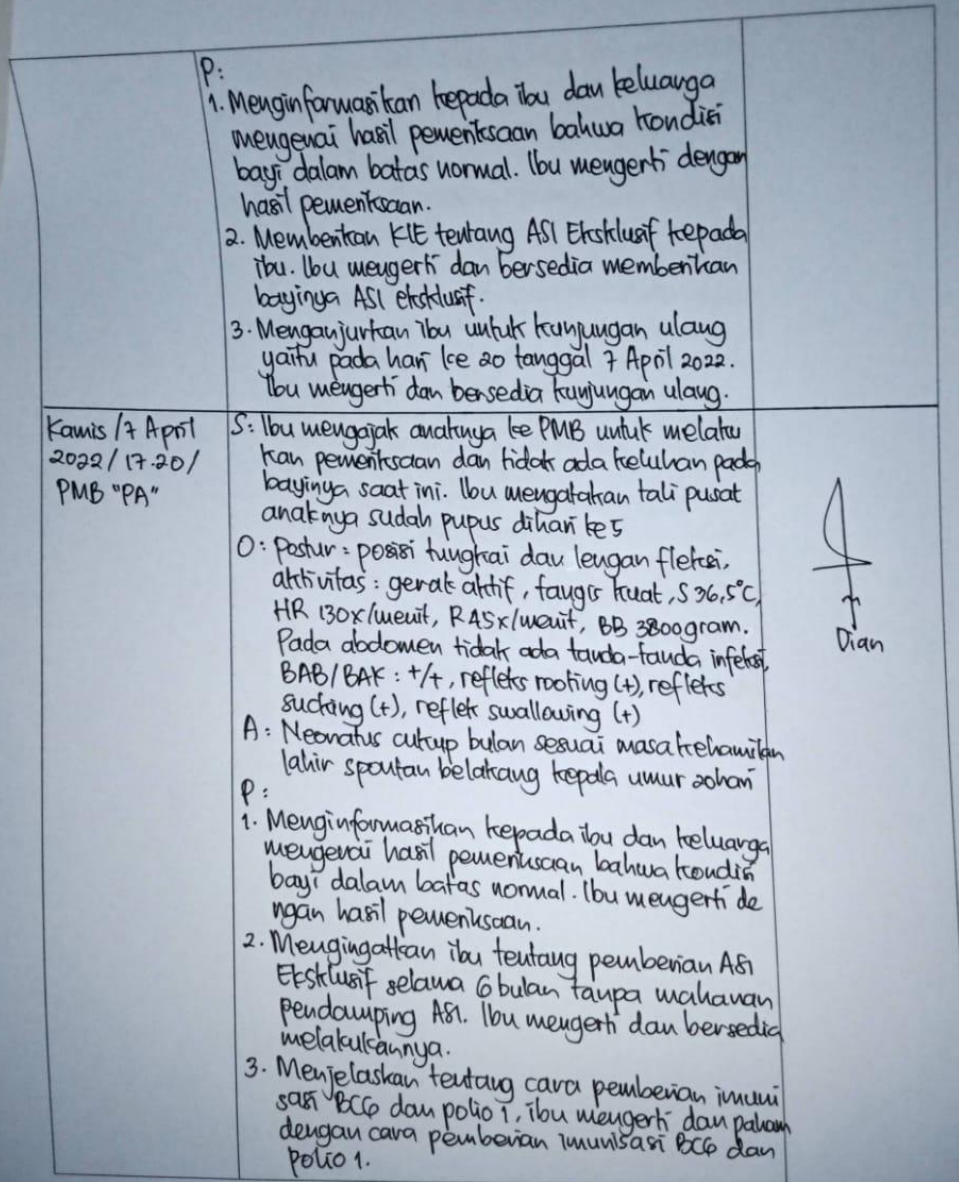 P:
1. Menginformasikan kepada ibu dan keluarga
mengenai hasil pemeriksaan bahwa kondisi
bayi dalam batas normal. Ibu mengerti dengan
hasil pemeriksaan.
2. Memberikan KIE tentang ASI Eksklusif kepada
ibu. Ibu mengerti dan bersedia memberikan
bayinya ASI eksklusif.
3. Menganjurkan ibu untuk kunjungan ulang
yaitu pada hari ke 20 tanggal 7 April 2022.
Ibu mengerti dan bersedia kunjungan ulang.
Kamis / 7 April
2022 / 17.20 /
PMB "PA"
S: Ibu mengajak anaknya ke PMB untuk melaku
kan pemeriksaan dan tidak ada keluhan pada
bayinya saat ini. Ibu mengatakan tali pusat
anaknya sudah pupus dihari ke 5
O: Postur : posisi tungkai dan lengan fleksi,
aktivitas : gerak aktif, tangis kuat, S 36,5°C,
HR 130x/menit, R 45x/menit, BB 3800gram.
Pada abdomen tidak ada tanda-tanda infeksi,
BAB/BAK : +/+, refleks rooting (+), refleks
sucking (+), reflek swallowing (+)
A: Neonatus cukup bulan sesuai masa kehamilan
lahir spontan belakang kepala umur 20hari
P:
1. Menginformasikan kepada ibu dan keluarga
mengenai hasil pemeriksaan bahwa kondisi
bayi dalam batas normal. Ibu mengerti de
ngan hasil pemeriksaan.
2. Mengingatkan ibu tentang pemberian ASI
Eksklusif selama 6 bulan tanpa makanan
pendamping ASI. Ibu mengerti dan bersedia
melakukannya.
3. Menjelaskan tentang cara pemberian imuni
sasi BCG dan polio 1, ibu mengerti dan paham
dengan cara pemberian imunisasi BCG dan
polio 1.
Dian